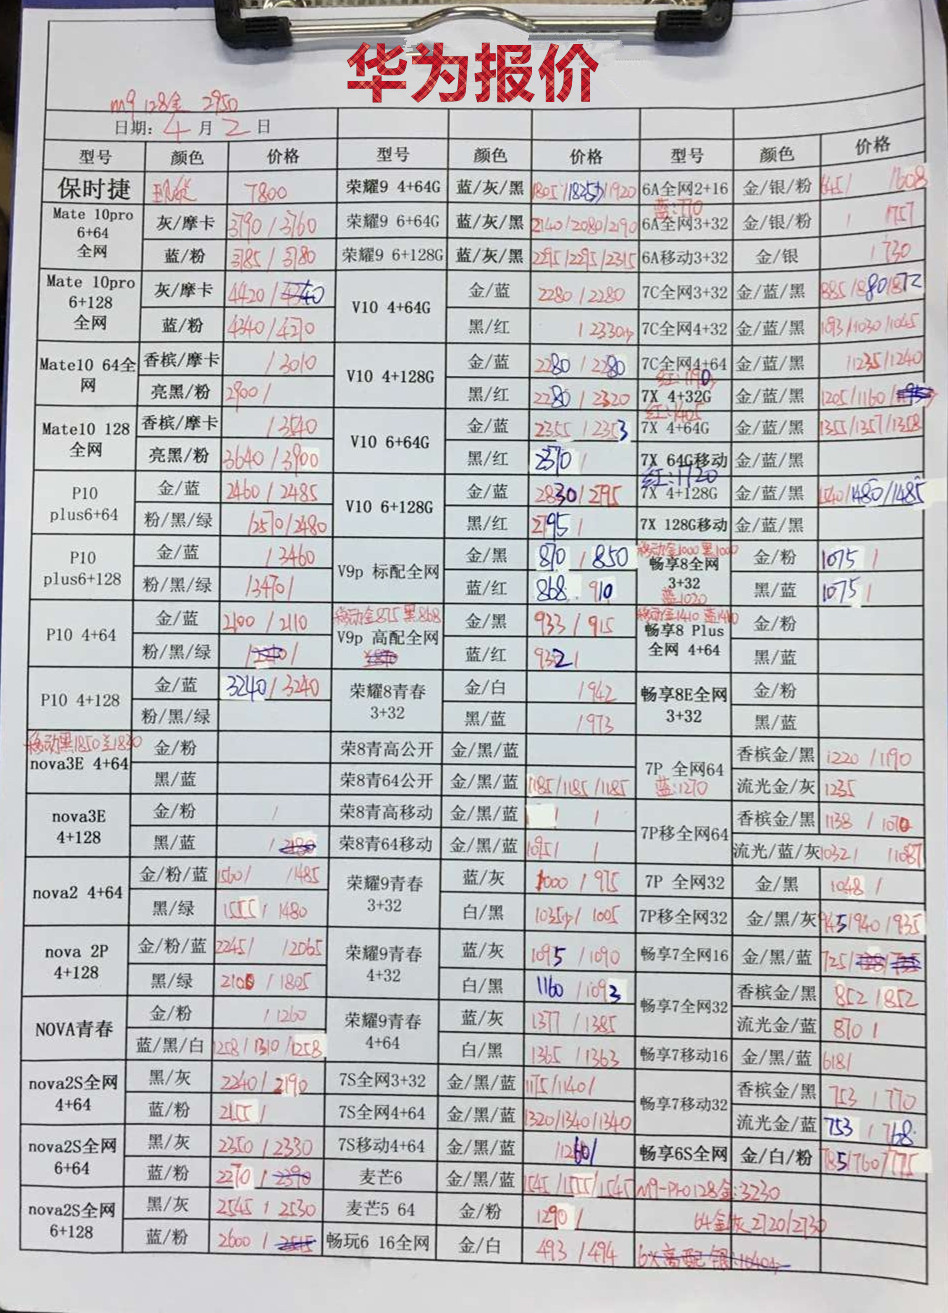 华为报价
m9 128金 2950
日期: 4月2日
型号 颜色 价格 型号 颜色 价格 型号 颜色 价格
保时捷 7800 荣耀9 4+64G 蓝/灰/黑 1805/1825/1920 6A全网2+16 金/银/粉 645/ 1608
Mate 10pro 6+64 全网 灰/摩卡 3790/3760 荣耀9 6+64G 蓝/灰/黑 2140/2080/2190 蓝:770 6A全网3+32 金/银/粉 / 757
蓝/粉 3785/3780 荣耀9 6+128G 蓝/灰/黑 2295/2295/2315 6A移动3+32 金/银 / 730
Mate 10pro 6+128 全网 灰/摩卡 4420/ V10 4+64G 金/蓝 2280/2280 7C全网3+32 金/蓝/黑 885/880/872
蓝/粉 4340/4270 黑/红 / 2330 7C全网4+32 金/蓝/黑 1093/1030/1045
Mate10 64全网 香槟/摩卡 / 3010 V10 4+128G 金/蓝 2280/2280 7C全网4+64 金/蓝/黑 /1235/1240
亮黑/粉 2900/ 黑/红 2280/2320 7X 4+32G 金/蓝/黑 1205/1160/
Mate10 128全网 香槟/摩卡 / 3540 V10 6+64G 金/蓝 2355/2353 红:1405 7X 4+64G 金/蓝/黑 1355/1357/1358
亮黑/粉 3640/3900 黑/红 2370/ 7X 64G移动 金/蓝/黑
P10 plus6+64 金/蓝 2460/2485 V10 6+128G 金/蓝 2830/2795 红:1720 7X 4+128G 金/蓝/黑 1540/1480/1485
粉/黑/绿 2570/2480 黑/红 2795/ 7X 128G移动 金/蓝/黑
P10 plus6+128 金/蓝 / 3460 V9p 标配全网 金/黑 870/850 移动金1000 黑1000 畅享8全网 3+32 蓝1020 金/粉 1075/
粉/黑/绿 3470/ 蓝/红 868 910 黑/蓝 1075/
P10 4+64 金/蓝 2100/2110 移动金875 黑868 V9p 高配全网 金/黑 933/915 移动金1410 蓝1410 畅享8 Plus 全网 4+64 金/粉
粉/黑/绿 蓝/红 932/ 黑/蓝
P10 4+128 金/蓝 3240/3240 荣耀8青春 3+32 金/白 / 1942 畅享8E全网 3+32 金/粉
粉/黑/绿 黑/蓝 / 1973 黑/蓝
移动黑1850 nova3E 4+64 金/粉 荣8青高公开 金/黑/蓝 7P 全网64 蓝:1270 香槟金/黑 1220/1190
黑/蓝 荣8青64公开 金/黑/蓝 1185/1185/1185 流光金/灰 1235
nova3E 4+128 金/粉 / 荣8青高移动 金/黑/蓝 / 7P移全网64 香槟金/黑 1138/1070
黑/蓝 / 荣8青64移动 金/黑/蓝 1095/ / 流光/蓝/灰 1032/ /1087
nova2 4+64 金/粉/蓝 1560/ /1485 荣耀9青春 3+32 蓝/灰 1000/975 7P 全网32 金/黑 1048/
黑/绿 1555/1480 白/黑 1035/1005 7P移全网32 金/黑/灰 945/940/935
nova 2P 4+128 金/粉/蓝 2245/ /2065 荣耀9青春 4+32 蓝/灰 1095/1090 畅享7全网16 金/黑/蓝 725/
黑/绿 2100/1805 白/黑 1160/1093 畅享7全网32 香槟金/黑 852/852
NOVA青春 金/粉 / 1260 荣耀9青春 4+64 蓝/灰 1377/1385 流光金/蓝 870/
蓝/黑/白 1258/1310/1258 白/黑 1365/1363 畅享7移动16 金/黑/蓝 618/
nova2S全网 4+64 黑/灰 2240/2190 7S全网3+32 金/黑/蓝 1175/1140/ 畅享7移动32 香槟金/黑 753/770
蓝/粉 2155/ 7S全网4+64 金/黑/蓝 1320/1340/1340 流光金/蓝 753/768
nova2S全网 6+64 黑/灰 2350/2330 7S移动4+64 金/黑/蓝 /1260/ 畅享6S全网 金/白/粉 785/760/775
蓝/粉 2270/2390 麦芒6 金/黑/蓝 1545/1555/1545 m9-Pro128金:3230
nova2S全网 6+128 黑/灰 2545/2530 麦芒5 64 金/粉 1290/ 64金灰 2720/2730
蓝/粉 2600/ 畅玩6 16全网 金/白 493/494 6X高配 银:1040